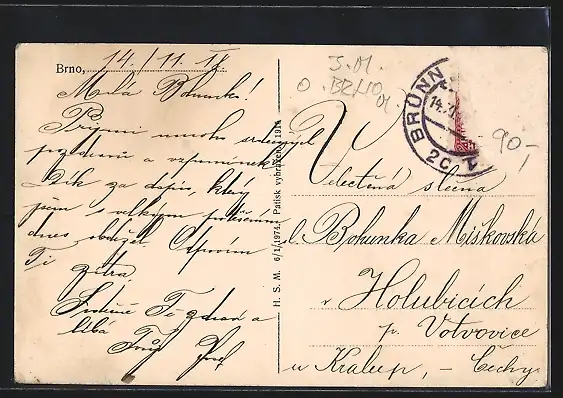 Brno, 14./11. 17.
Milá Bohunka!
Přijmi mnoho srdečných
pozdravů a vzpomínek.
Dík za dopis, který
jsem s velkým potěšením
dnes obdržel. Odpovím
Ti zítra.
Srdečně Tě zdraví a
líbá
Tvůj Josef
H. S. M. 6/1/1974. Patisk vyhrazen. 1914
S.M.
O. BRNO
BRÜNN
14.
2c
90-,
Velectěná slečna
sl. Bohunka Miškovská
v Holubicích
p. Votvovice
u Kralup, – Čechy